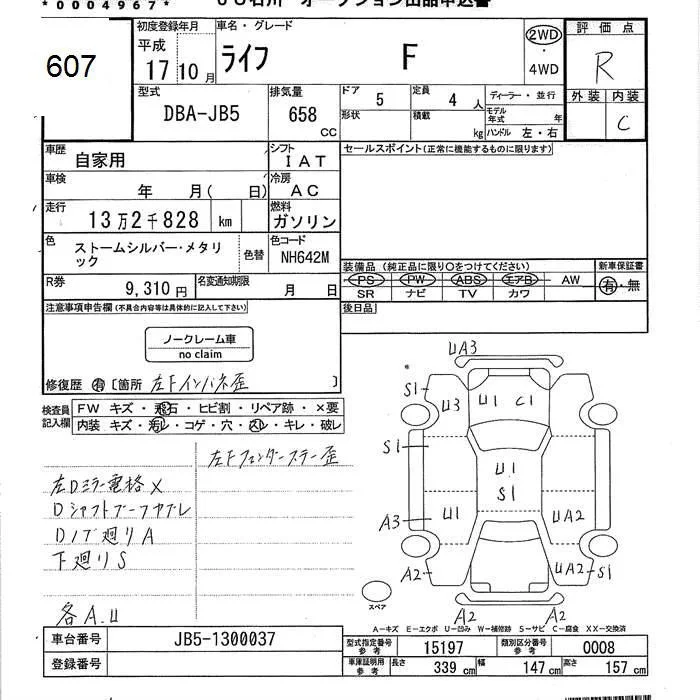 *0004967*
JU石川 オークション出品申込書
607
初度登録年月
平成
17 10月
車名・グレード
ライフ F
2WD
・
4WD
評価点
R
外装 内装
C
型式
DBA-JB5
排気量
658 CC
ドア 5
定員 4 人
ディーラー・並行
形状
積載 kg
モデル年式 年
ハンドル 左・右
車歴
自家用
シフト
IAT
セールスポイント(正常に機能するものに限ります)
車検
年 月( 日)
冷房
AC
走行
13万2千828 km
燃料
ガソリン
色
ストームシルバー・メタリック
色替
色コード
NH642M
装備品(純正品に限り○をつけてください)
新車保証書
PS PW ABS エアB AW
有・無
SR ナビ TV カワ
R券
9,310円
名変通知期限
月 日
後日品
注意事項申告欄(不具合内容等は具体的に記入して下さい)
ノークレーム車
no claim
修復歴 有 [箇所 左Fインパネ歪 ]
検査員記入欄
FW キズ・飛石・ヒビ割・リペア跡・×要
内装 キズ・汚レ・コゲ・穴・スレ・キレ・破レ
左Fフェンダーステー歪
左Dミラー電格×
Dシャフトブーツヤブレ
Dノブ廻りA
下廻りS
各A.U
UA3
S1 U3 U1 C1
S1 U1
S1
A3 U1 UA2
A2 UA2 S1
スペア
A2 A2
A−キズ E−エクボ U−凹み W−補修跡 S−サビ C−腐食 XX−交換済
車台番号
JB5-1300037
登録番号
型式指定番号参考
15197
類別区分番号参考
0008
車庫証明用参考
長さ 339 cm
幅 147 cm
高さ 157 cm